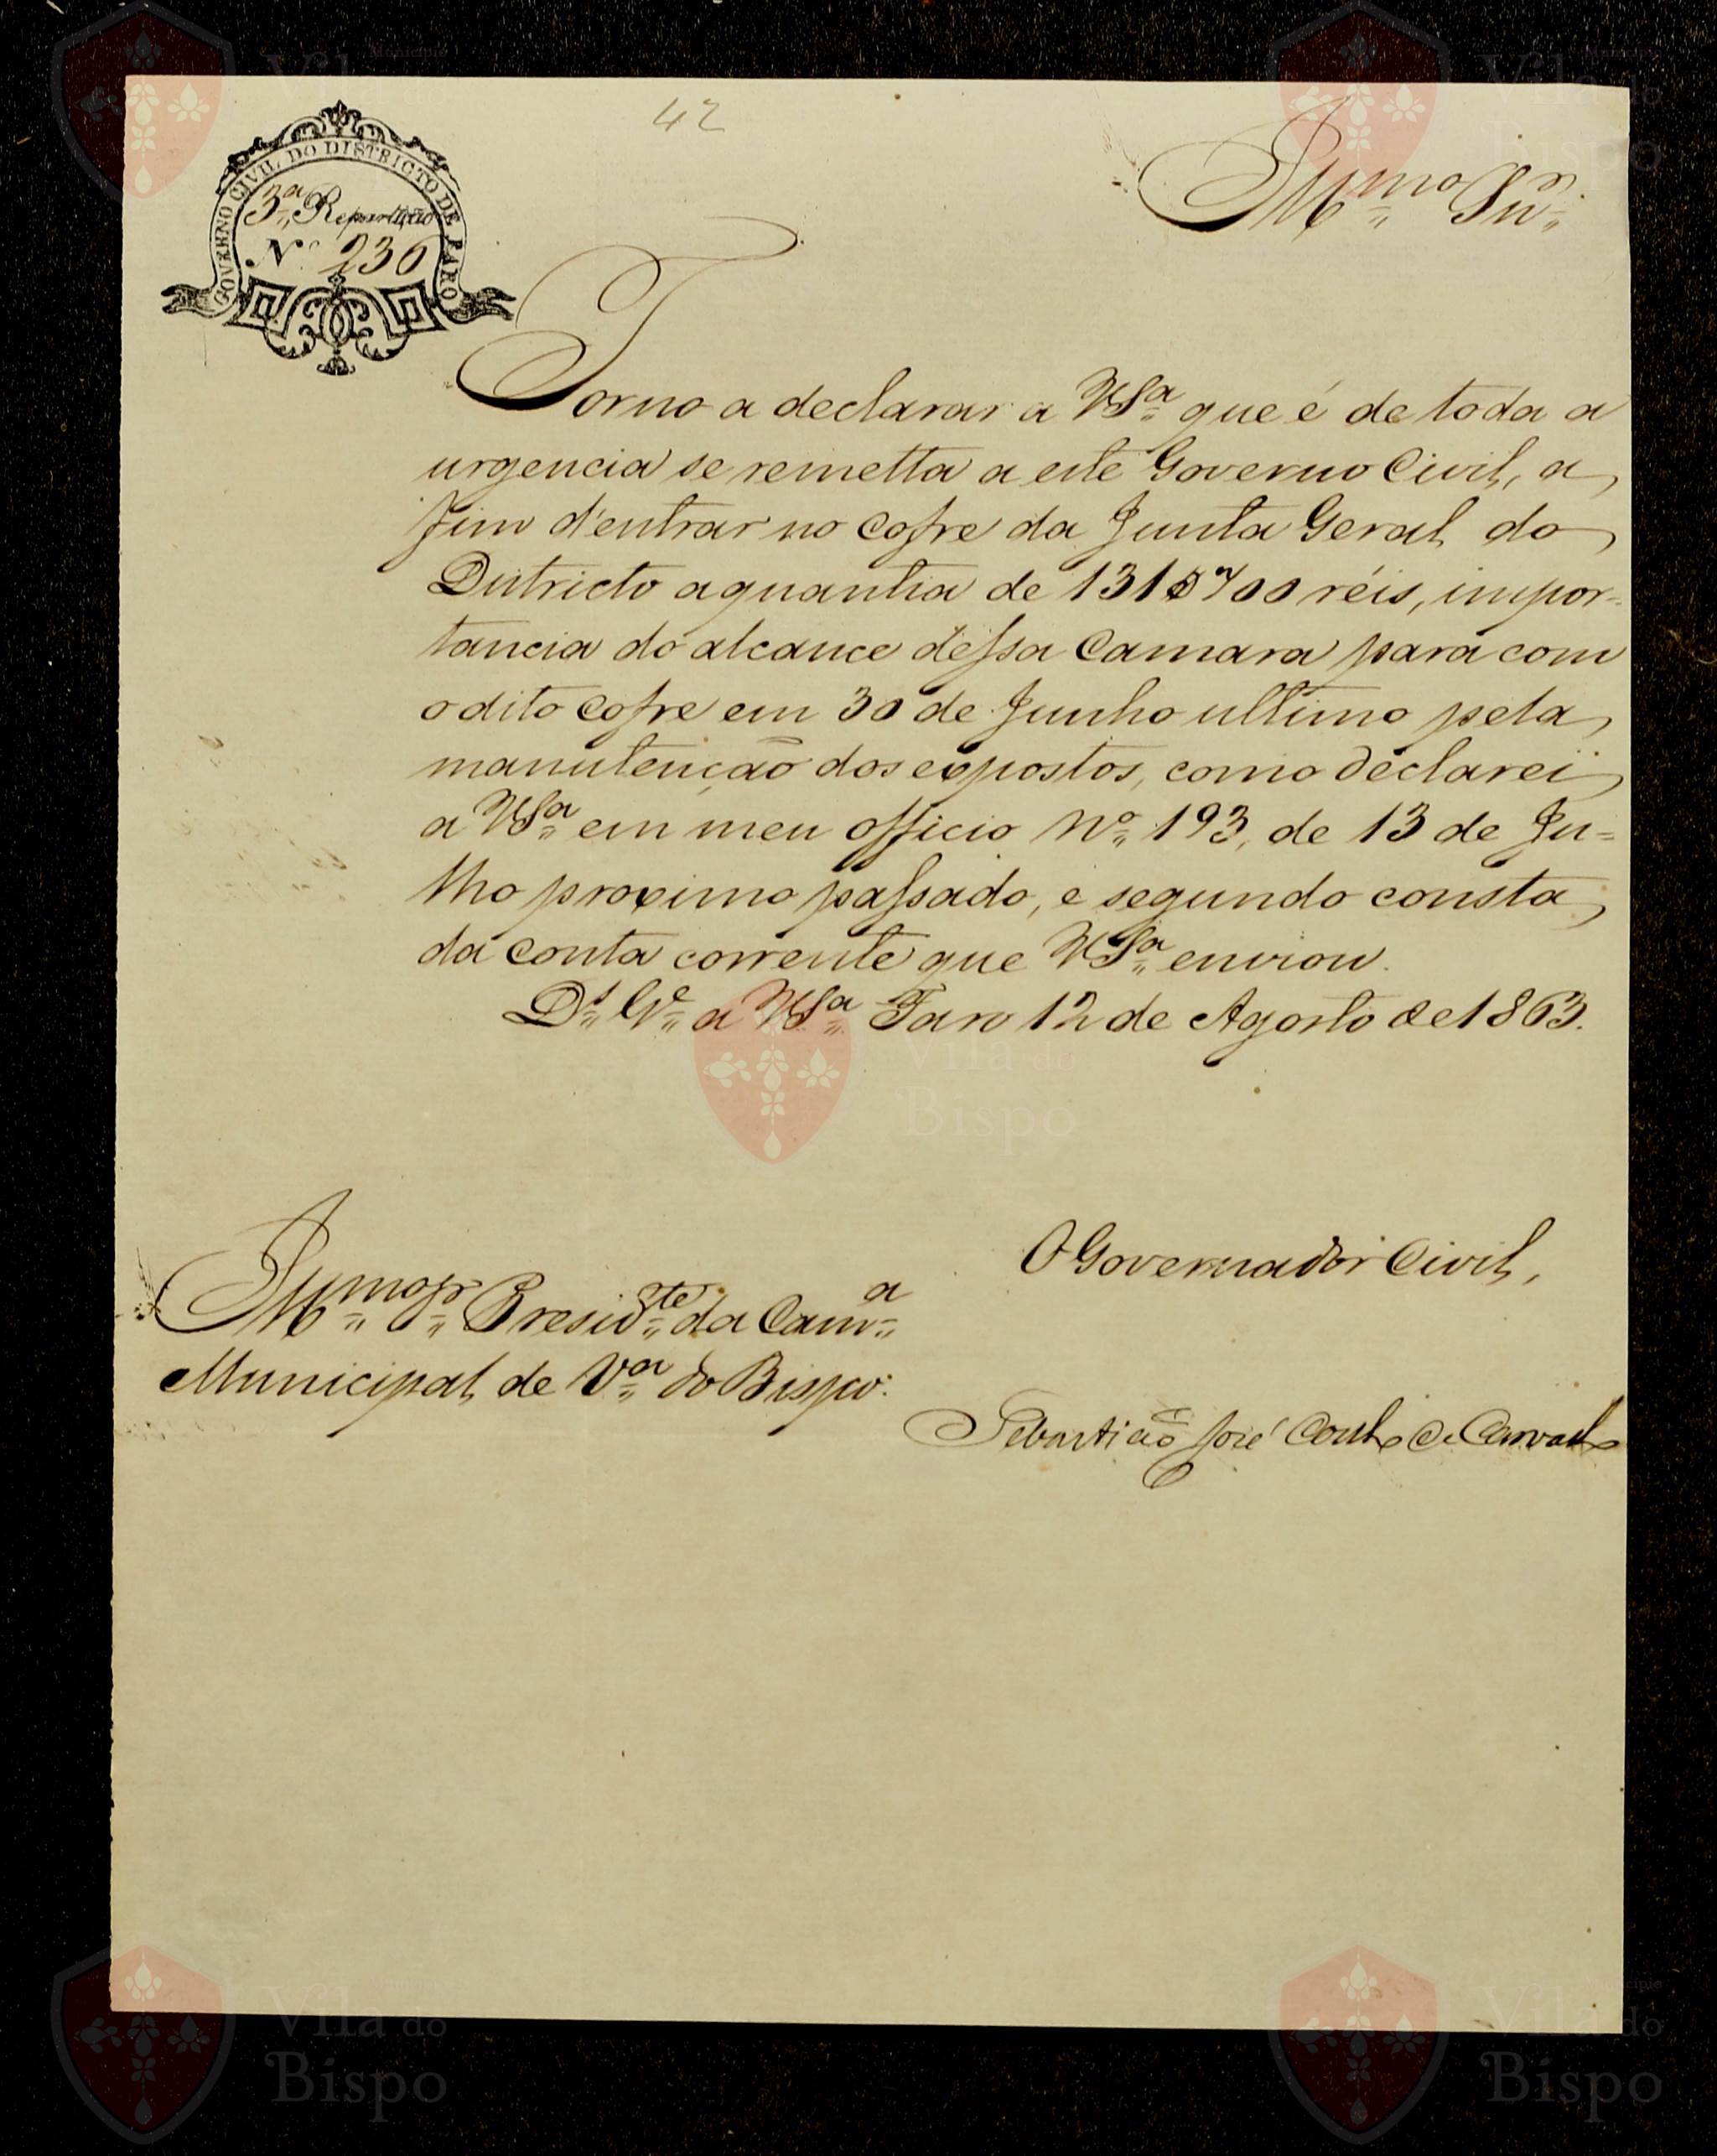 42
GOVERNO CIVIL DO DISTRICTO DE FARO
3.ª Repartição
N.º 236
Ill.mo Snr.
Torno a declarar a VS.ª que é de toda a
urgencia se remetta a este Governo Civil, a
fim d'entrar no cofre da Junta Geral do
Districto a quantia de 131$700 réis, impor-
tancia do alcance dessa Camara para com
o dito cofre em 30 de Junho ultimo pela
manutenção dos expostos, como declarei
a VS.ª em meu officio N.º 193, de 13 de Ju-
lho proximo passado, e segundo consta
da conta corrente que VS.ª enviou.
D.s G.e a VS.ª Faro 12 de Agosto de 1863.
O Governador Civil,
Ill.mo Sr. Presid.te da Cam.ª
Municipal de V.ª do Bispo.
Sebastião José Coelho de Carvalho
Vila do
Bispo
Vila do
Bispo
Vila do
Bispo
Município
Vila do
Bispo